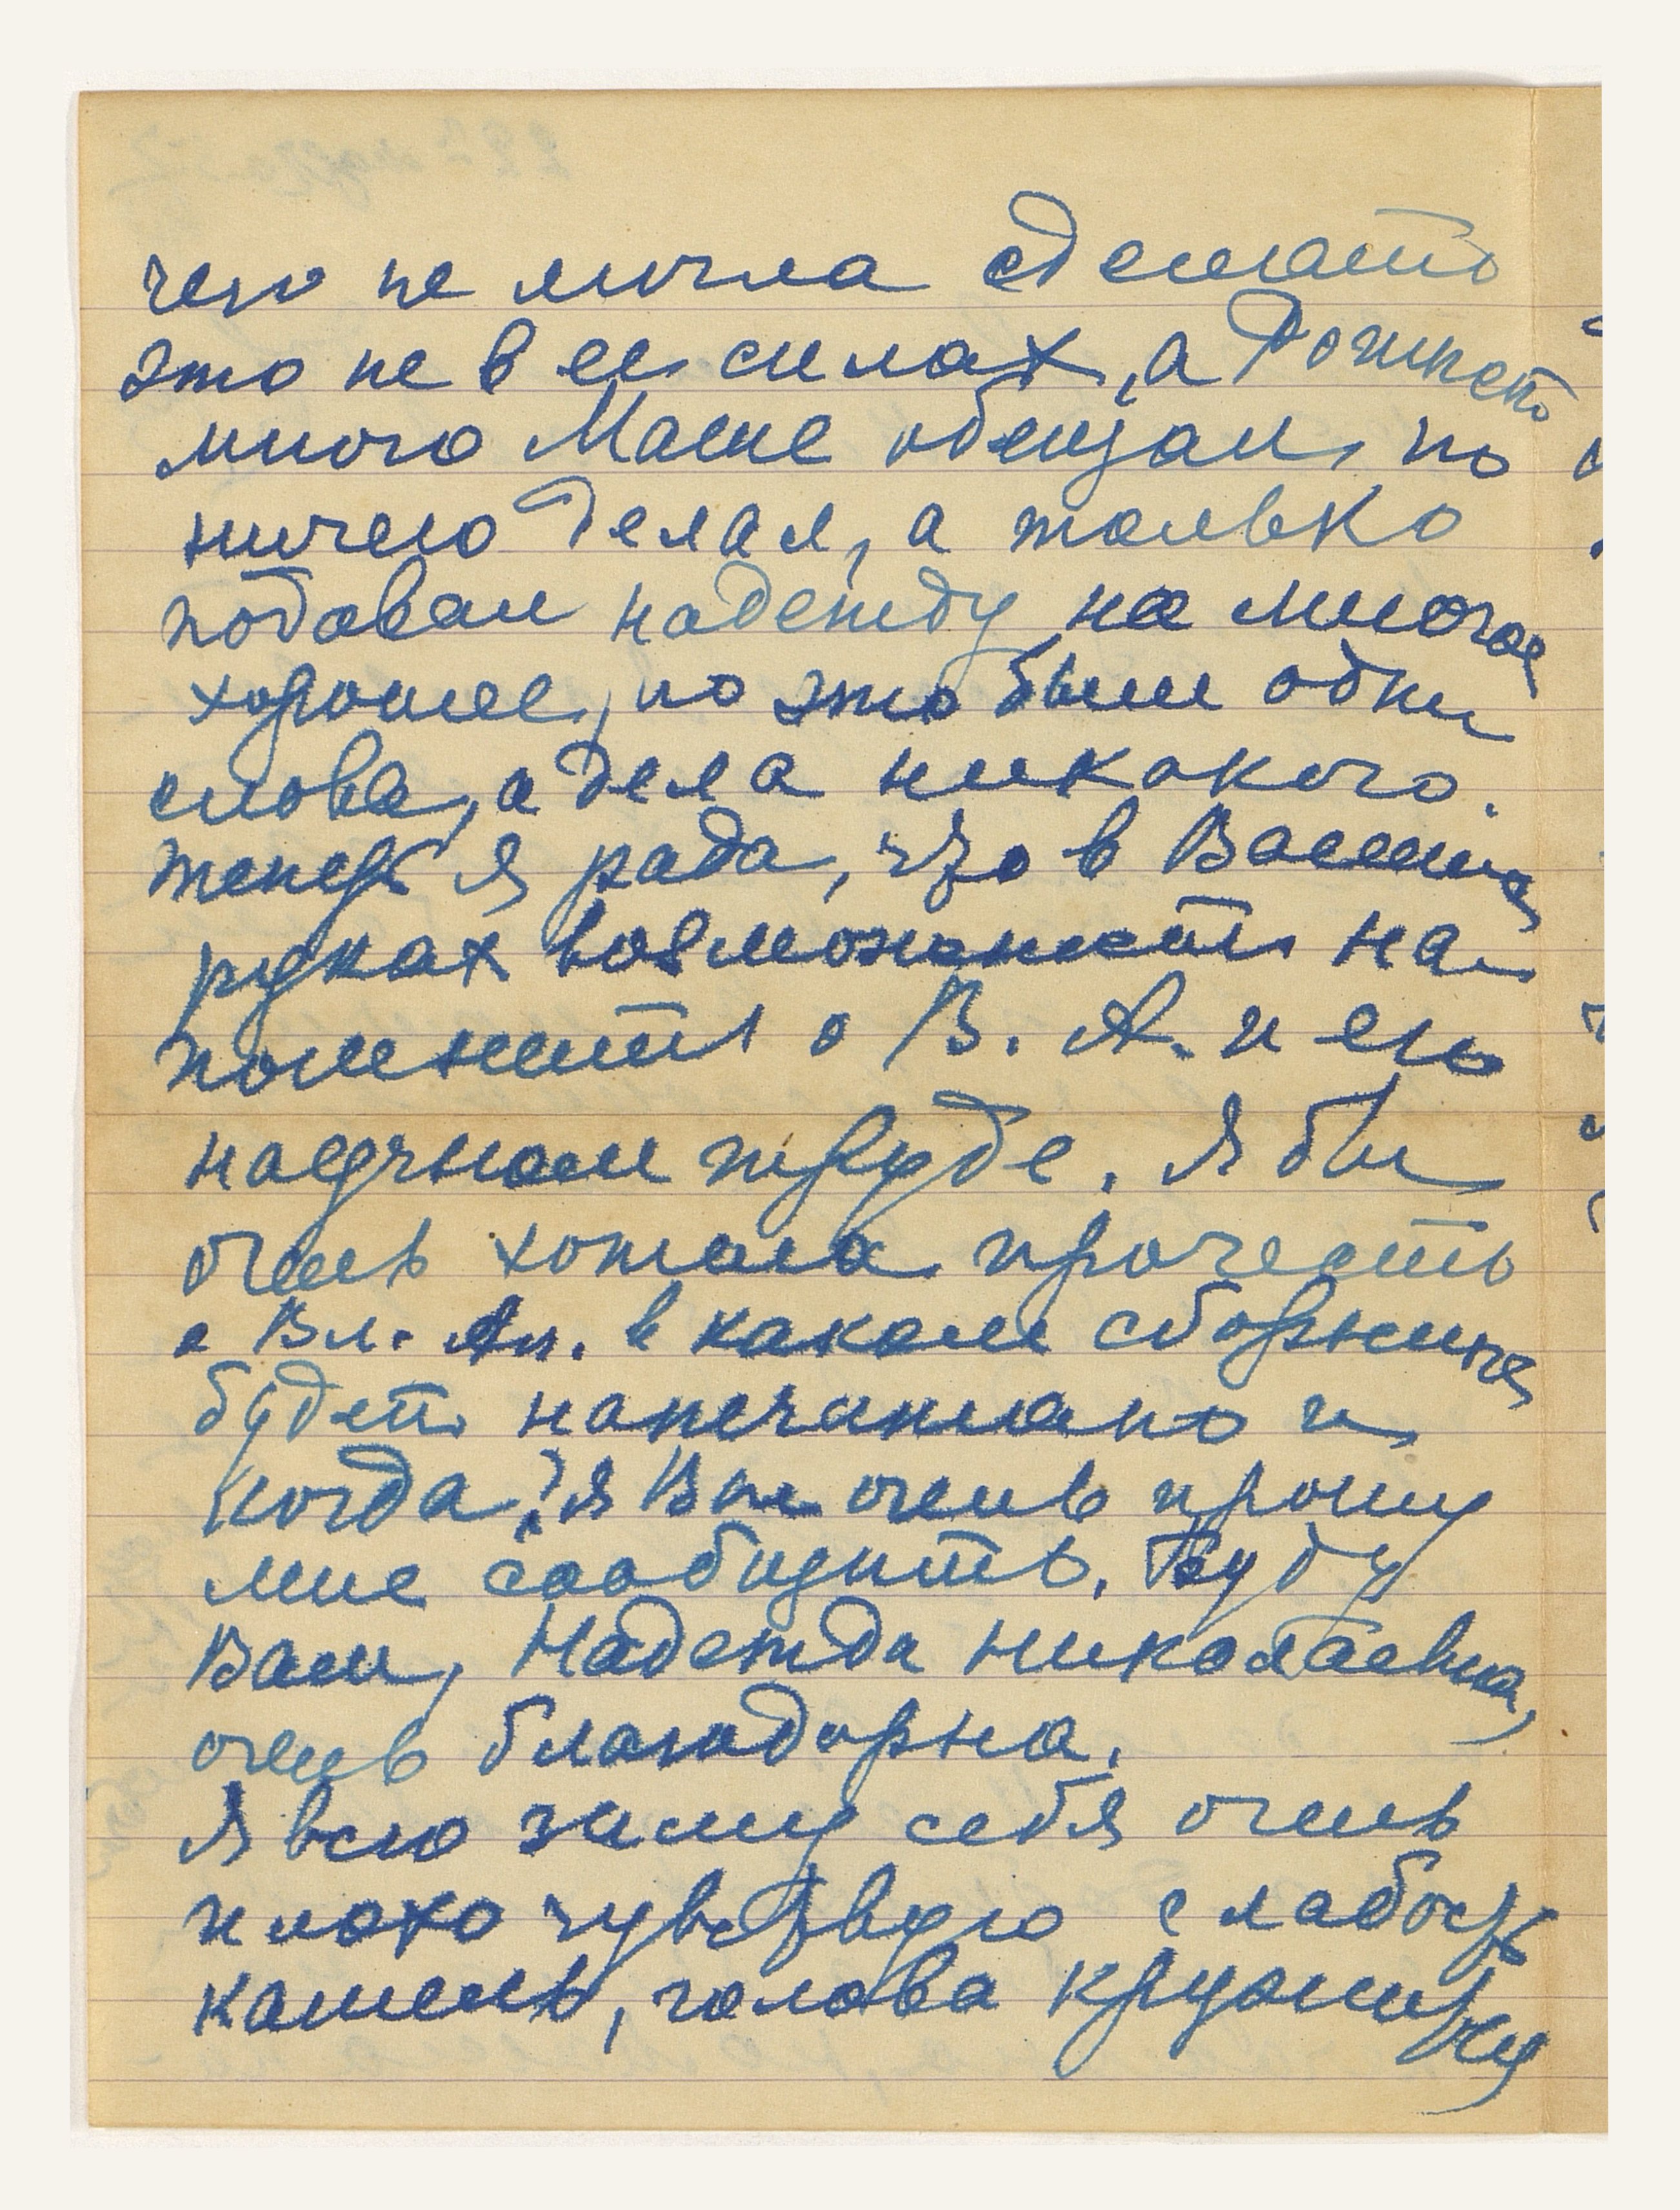 чего не могла сделать
это не в ее силах, а
много Маше обещал, но
ничего делал, а только
подавал надежду на многое
хорошее, но это были одни
слова, а дела никакого.
теперь я рада, что в Ваших
руках возможность на
помнить о В. А. и его
научном труде. Я бы
очень хотела прочесть
о Вл. Ан. в каком сборнике
будет напечатано и
когда? Я Вас очень прошу
мне сообщить. Буду
Вам, Надежда Николаевна,
очень благодарна.
Я всю зиму себя очень
плохо чувствую слабость
кашель, голова кружится